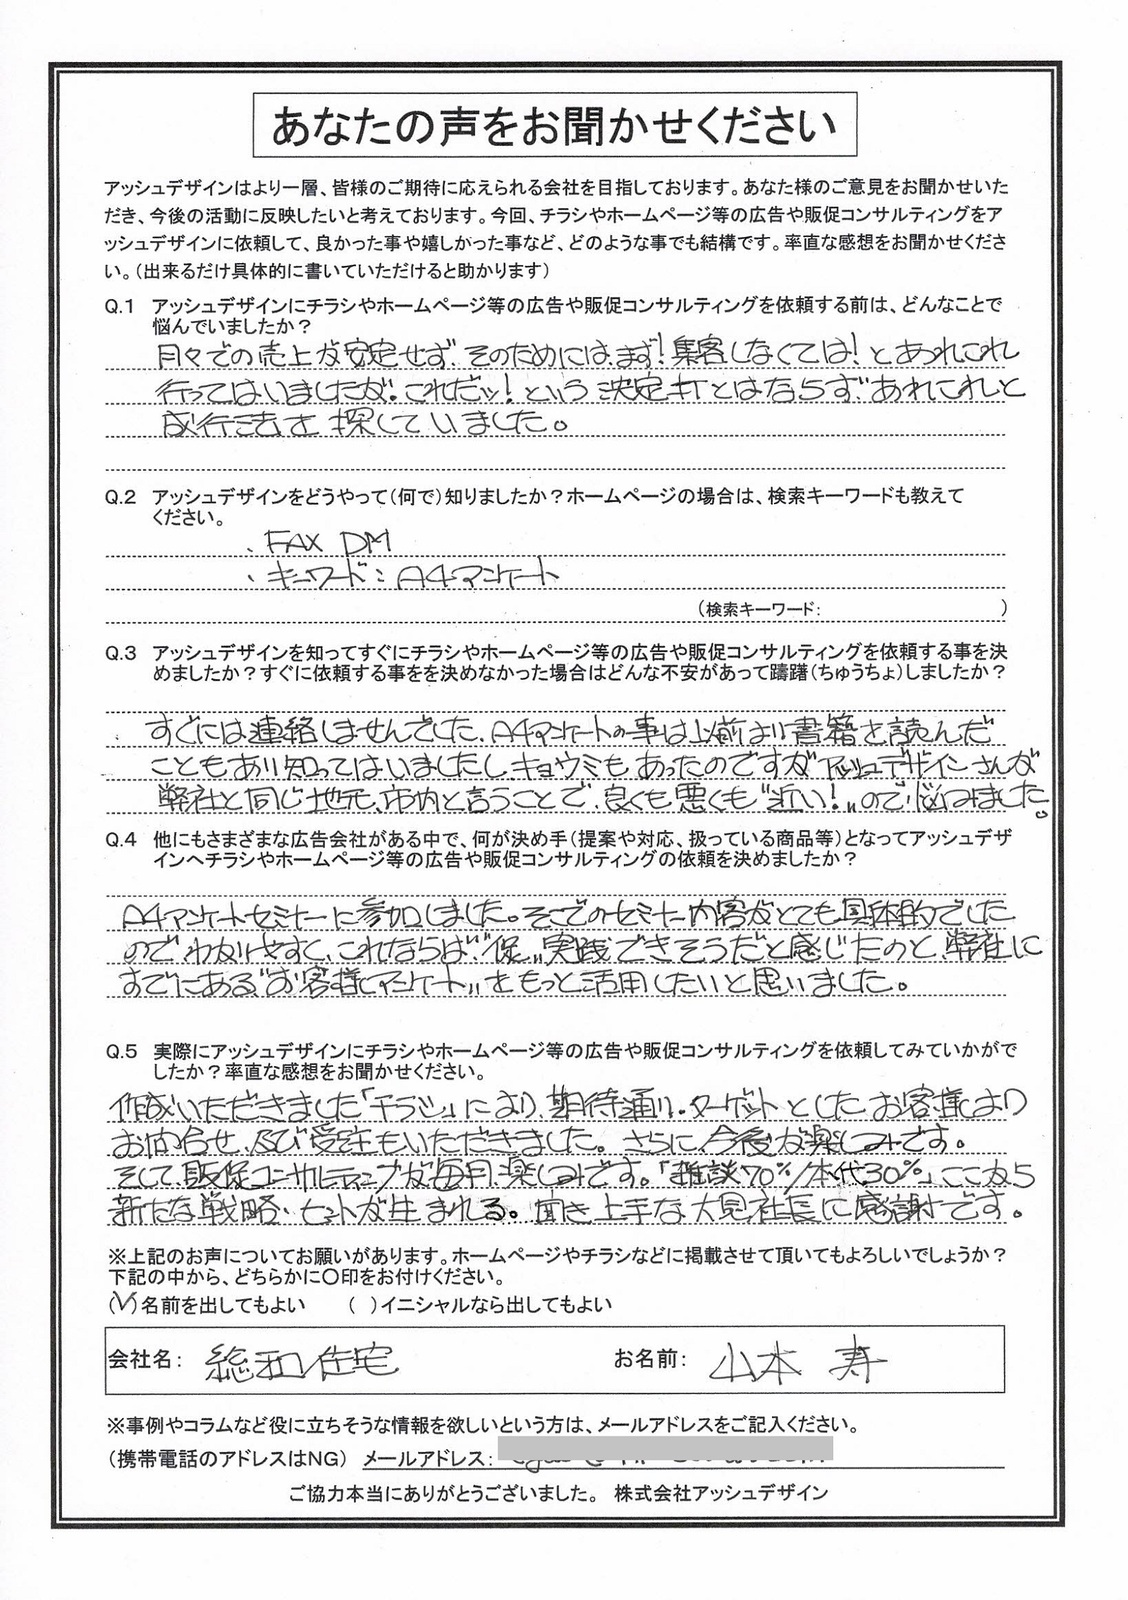 あなたの声をお聞かせください
アッシュデザインはより一層、皆様のご期待に応えられる会社を目指しております。あなた様のご意見をお聞かせいた
だき、今後の活動に反映したいと考えております。今回、チラシやホームページ等の広告や販促コンサルティングをア
ッシュデザインに依頼して、良かった事や嬉しかった事など、どのような事でも結構です。率直な感想をお聞かせくださ
い。(出来るだけ具体的に書いていただけると助かります)
Q.1 アッシュデザインにチラシやホームページ等の広告や販促コンサルティングを依頼する前は、どんなことで
悩んでいましたか？
月々での売上が安定せず、そのためには、まず！集客しなくては！とあれこれ
行ってはいましたが、これだッ！という決定打とはならずあれこれと
成行法を探していました。
Q.2 アッシュデザインをどうやって(何で)知りましたか？ホームページの場合は、検索キーワードも教えて
ください。
・FAX DM
・キーワード：A4アンケート
(検索キーワード： )
Q.3 アッシュデザインを知ってすぐにチラシやホームページ等の広告や販促コンサルティングを依頼する事を決
めましたか？すぐに依頼する事をを決めなかった場合はどんな不安があって躊躇(ちゅうちょ)しましたか？
すぐには連絡しませんでした、A4アンケートの事は以前より書籍を読んだ
こともあり知ってはいましたし、キョウミもあったのですが アッシュデザインさんが
弊社と同じ地元、市内と言うことで、良くも悪くも“近い！”ので、悩みました。
Q.4 他にもさまざまな広告会社がある中で、何が決め手(提案や対応、扱っている商品等)となってアッシュデザ
インへチラシやホームページ等の広告や販促コンサルティングの依頼を決めましたか？
A4アンケートセミナーに参加しました。そこでのセミナー内容がとても具体的でした
ので、わかりやすく、これならば“即”実践できそうだと感じたのと、弊社に
すでにある“お客様アンケート”をもっと活用したいと思いました。
Q.5 実際にアッシュデザインにチラシやホームページ等の広告や販促コンサルティングを依頼してみていかがで
したか？率直な感想をお聞かせください。
作成いただきました「チラシ」により、期待通り、ターゲットとしたお客様より
お問合せ、及び受注もいただきました。さらに、今後が楽しみです。
そして、販促コンサルティングが毎月楽しみです。「雑談70%/本代30%」ここから
新たな戦略・ヒントが生まれる。聞き上手な大見社長に感謝です。
※上記のお声についてお願いがあります。ホームページやチラシなどに掲載させて頂いてもよろしいでしょうか？
下記の中から、どちらかに〇印をお付けください。
(✓)名前を出してもよい ( )イニシャルなら出してもよい
会社名： 総和住宅 お名前： 山本 寿
※事例やコラムなど役に立ちそうな情報を欲しいという方は、メールアドレスをご記入ください。
(携帯電話のアドレスはNG) メールアドレス：
ご協力本当にありがとうございました。 株式会社アッシュデザイン